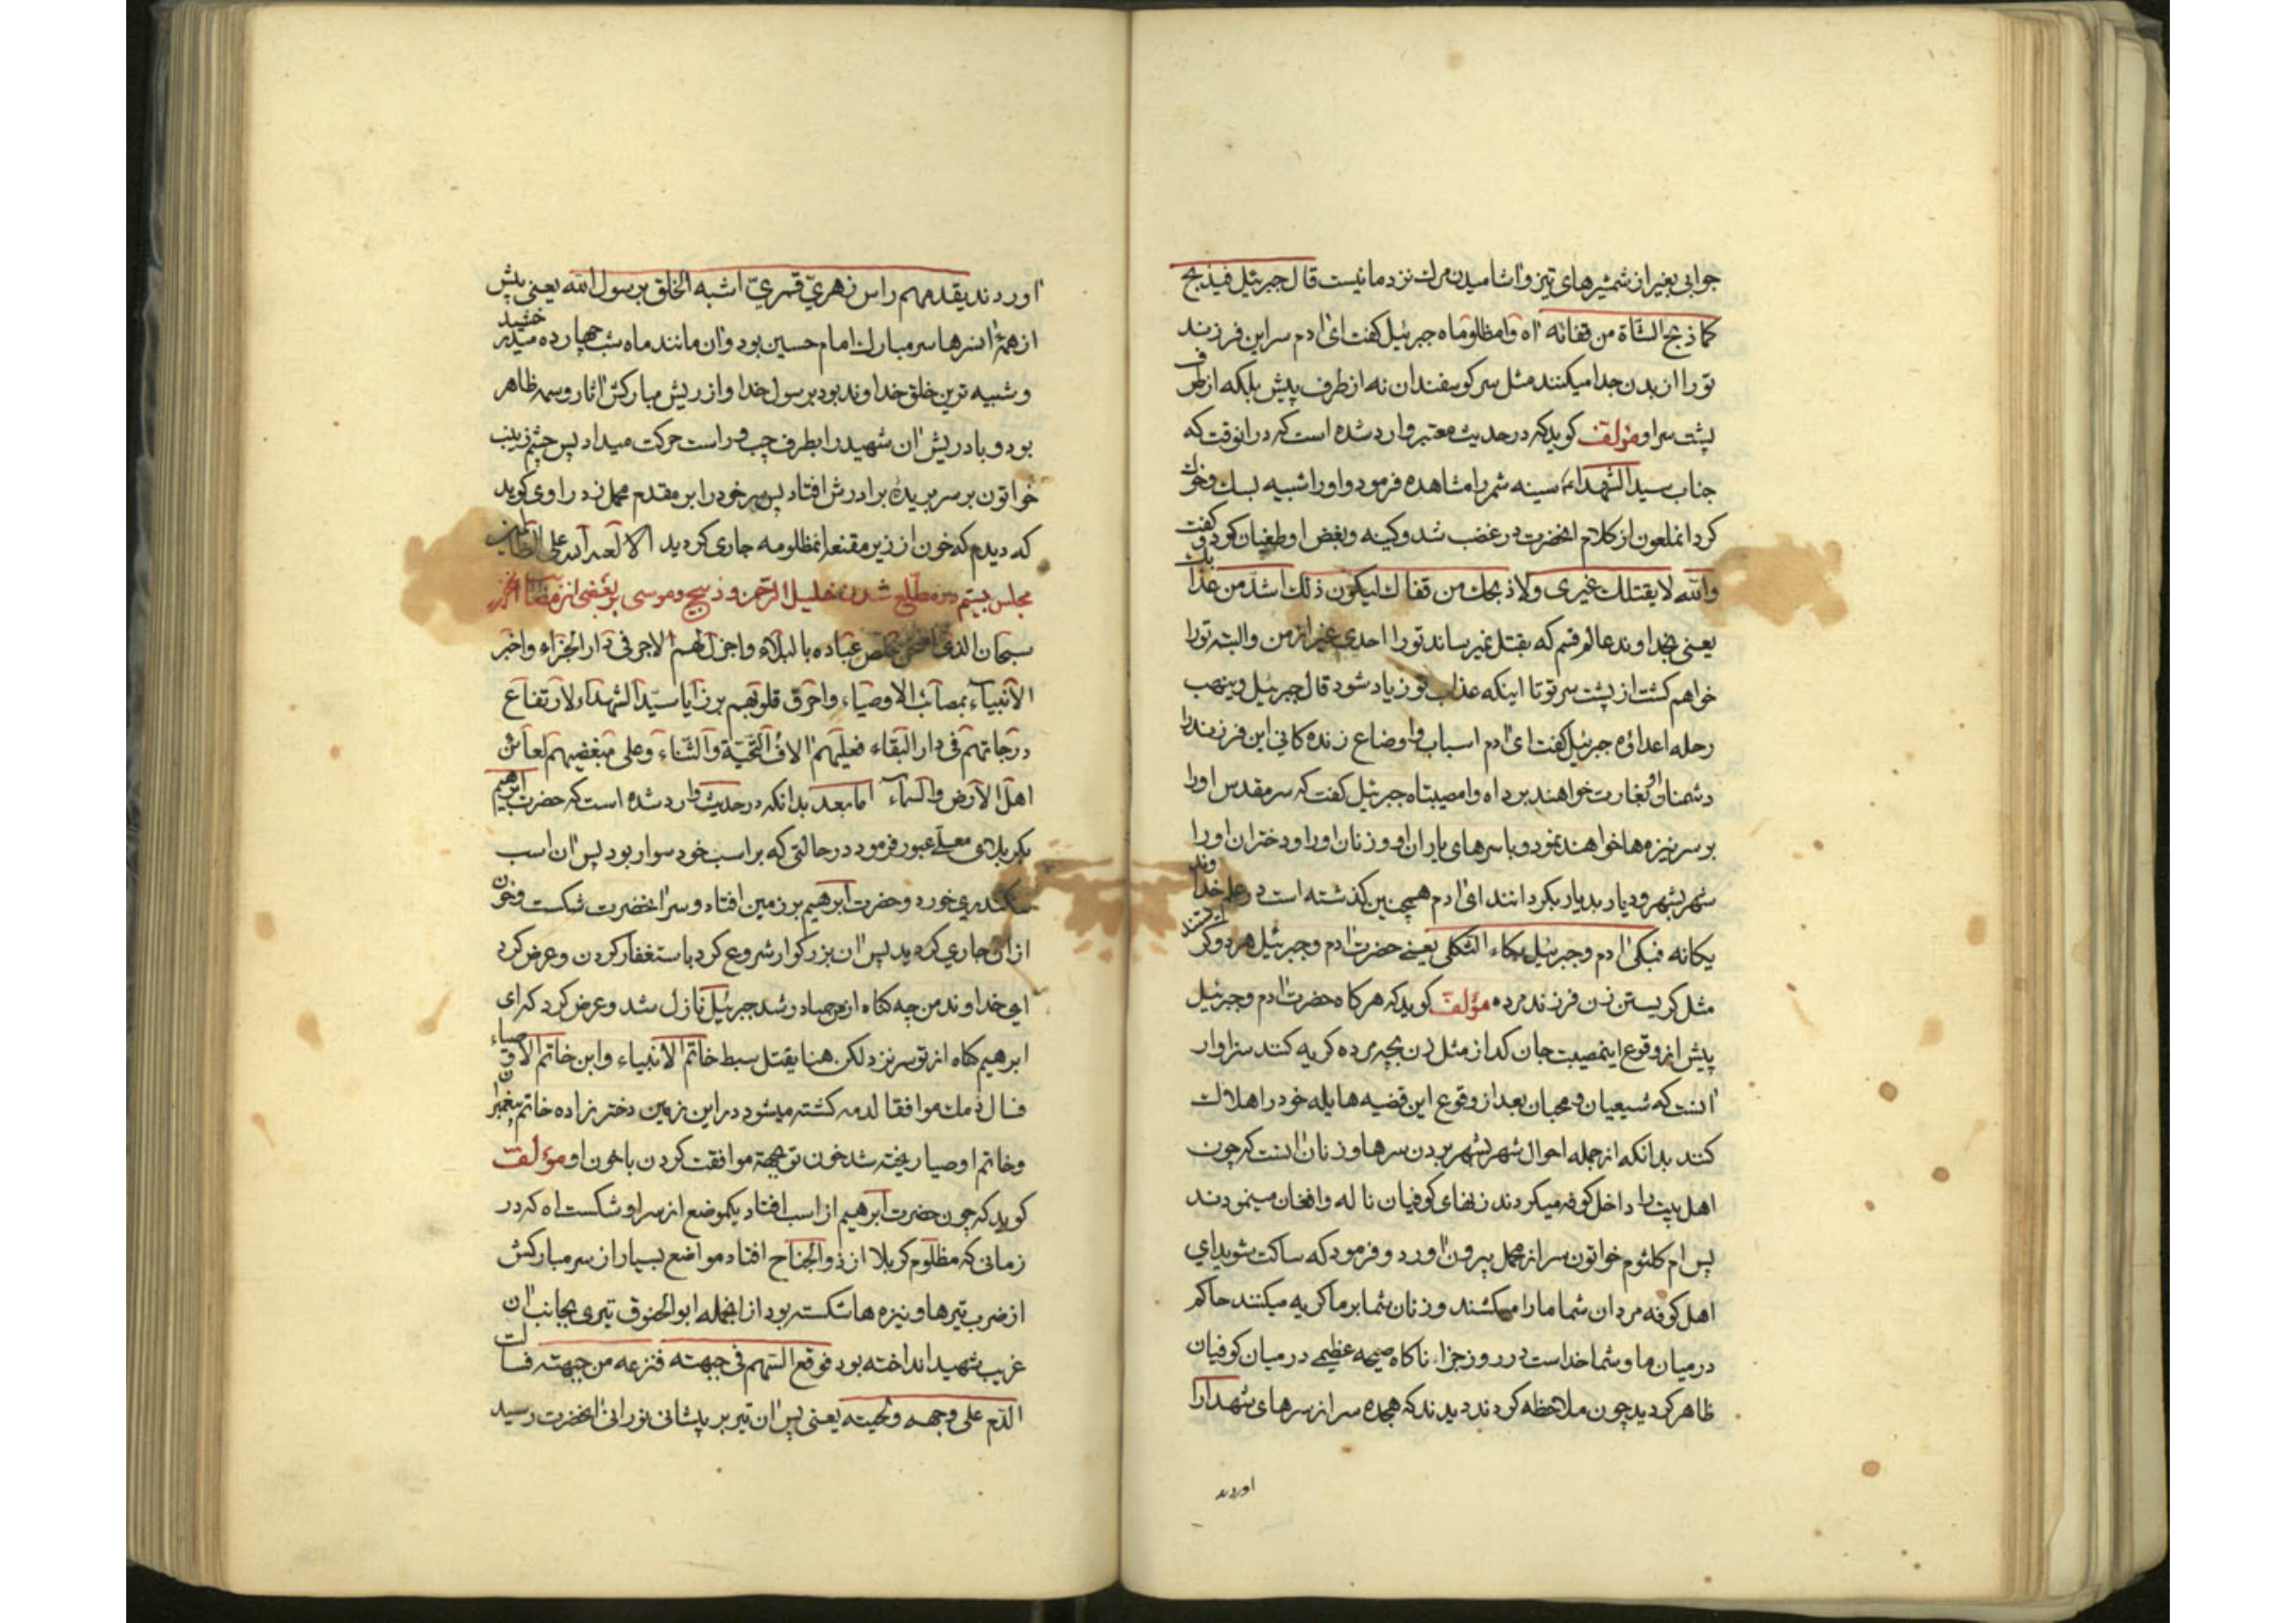 جوابی بغیر از شمشیرهای تیز و اشامیدن مرک نزد ما نیست قال جبرئیل فیذبح
کما ذبح الشاة من قفائه اه وا مظلوماه جبرئیل کفت ای ادم سر این فرزند
تو را از بدن جدا میکنند مثل سر کوسفندان نه از طرف پیش بلکه از طرف
پشت سر او مؤلف کوید که در حدیث معتبر وارد شده است که در انوقت که
جناب سید الشهداء سینه شمر را مشاهده فرمود و او را شبیه بسک و خوک
کرد انملعون از کلام انحضرت در غضب شد و کینه و بغض او طغیان کرد و کفت
والله لا یقتلک غیری ولاذبحنک من قفاک لیکون ذلک اشد من عذابک
یعنی بخداوند عالم قسم که بقتل نمیرساند تو را احدی غیر از من و البته تو را
خواهم کشت از پشت سر تو تا اینکه عذاب تو زیاد شود قال جبرئیل و ینهب
رحله اعداؤه جبرئیل کفت ای ادم اسباب و اوضاع زنده کانی این فرزند را
دشمنان او بغارت خواهند برد اه وا مصیبتاه جبرئیل کفت که سر مقدس او را
بر سر نیزه ها خواهند نمود و با سرهای یاران او و زنان او را و دختران او را
شهر بشهر و دیار بدیار بکردانند ای ادم همچنین کذشته است در علم خداوند
یکانه فبکی ادم و جبرئیل بکاء الثکلی یعنی حضرت ادم و جبرئیل هر دو کریستند
مثل کریستن زن فرزند مرده مؤلف کوید که هر کاه حضرت ادم و جبرئیل
پیش از وقوع اینمصیبت جان کداز مثل زن بچه مرده کریه کنند سزاوار
انست که شیعیان و محبان بعد از وقوع این قضیه هایله خود را هلاک
کنند بدانکه از جمله احوال شهر بشهر بردن سرها و زنان انست که چون
اهل بیت را داخل کوفه میکردند زنهای کوفیان ناله و افغان مینمودند
پس ام کلثوم خواتون سر از محمل بیرون اورد و فرمود که ساکت شوید ای
اهل کوفه مردان شما ما را میکشند و زنان شما بر ما کریه میکنند حاکم
در میان ما و شما خداست در روز جزا ناکاه صیحه عظیمی در میان کوفیان
ظاهر کردید چون ملاحظه کردند دیدند که هجده سر از سرهای شهدا را
اوردند
اوردند یقدمهم راس زهری قمری اشبه الخلق برسول الله یعنی پیش
از همهٔ انسرها سر مبارک امام حسین بود و ان مانند ماه شب چهارده میدرخشید
و شبیه ترین خلق خداوند بود برسول خدا و از ریش مبارکش اثار وسمه ظاهر
بود و باد ریش ان شهید را بطرف چپ و راست حرکت میداد پس چشم زینب
خواتون بر سر بریدهٔ برادرش افتاد پس سر خود را بر مقدم محمل زد راوی کوید
که دیدم که خون از زیر مقنعه انمظلومه جاری کردید الا لعنة الله علی الظالمین
مجلس بیستم در مطلع شدن خلیل الرحمن و ذبیح و موسی بر بعضی از
سبحان الذی امتحن خلص عباده بالبلاء واجزل لهم الاجر فی دار الجزاء واخبر
الانبیاء بمصائب الاوصیاء واحرق قلوبهم برزایا سید الشهداء لارتفاع
درجاتهم فی دار البقاء فعلیهم الاف التحیة والثناء وعلی مبغضیهم لعائن
اهل الارض والسماء اما بعد بدانکه در حدیث وارد شده است که حضرت ابرهیم
بکربلای معلی عبور فرمود در حالتی که بر اسب خود سوار بود پس ان اسب
سکندری خورد و حضرت ابرهیم بر زمین افتاد و سر انحضرت شکست و خون
از ان جاری کردید پس ان بزرکوار شروع کرد باستغفار کردن و عرض کرد
ای خداوند من چه کناه از من صادر شد جبرئیل نازل شد و عرض کرد که ای
ابرهیم کناه از تو سر نزد لکن هنا یقتل سبط خاتم الانبیاء وابن خاتم الاوصیاء
فسال دمک موافقا لدمه کشته میشود در این زمین دختر زاده خاتم پیغمبران
و خاتم اوصیا ریخته شد خون تو بجهة موافقت کردن با خون او مؤلف
کوید که چون حضرت ابرهیم از اسب افتاد یکموضع از سر او شکست اه که در
زمانی که مظلوم کربلا از ذوالجناح افتاد مواضع بسیار از سر مبارکش
از ضرب تیرها و نیزه ها شکسته بود از انجمله ابوالحنوق تیری بجانب ان
غریب شهید انداخته بود فوقع السهم فی جبهته فنزعه من جبهته فسالت
الدم علی وجهه ولحیته یعنی پس ان تیر بر پیشانی نورانی انحضرت رسید